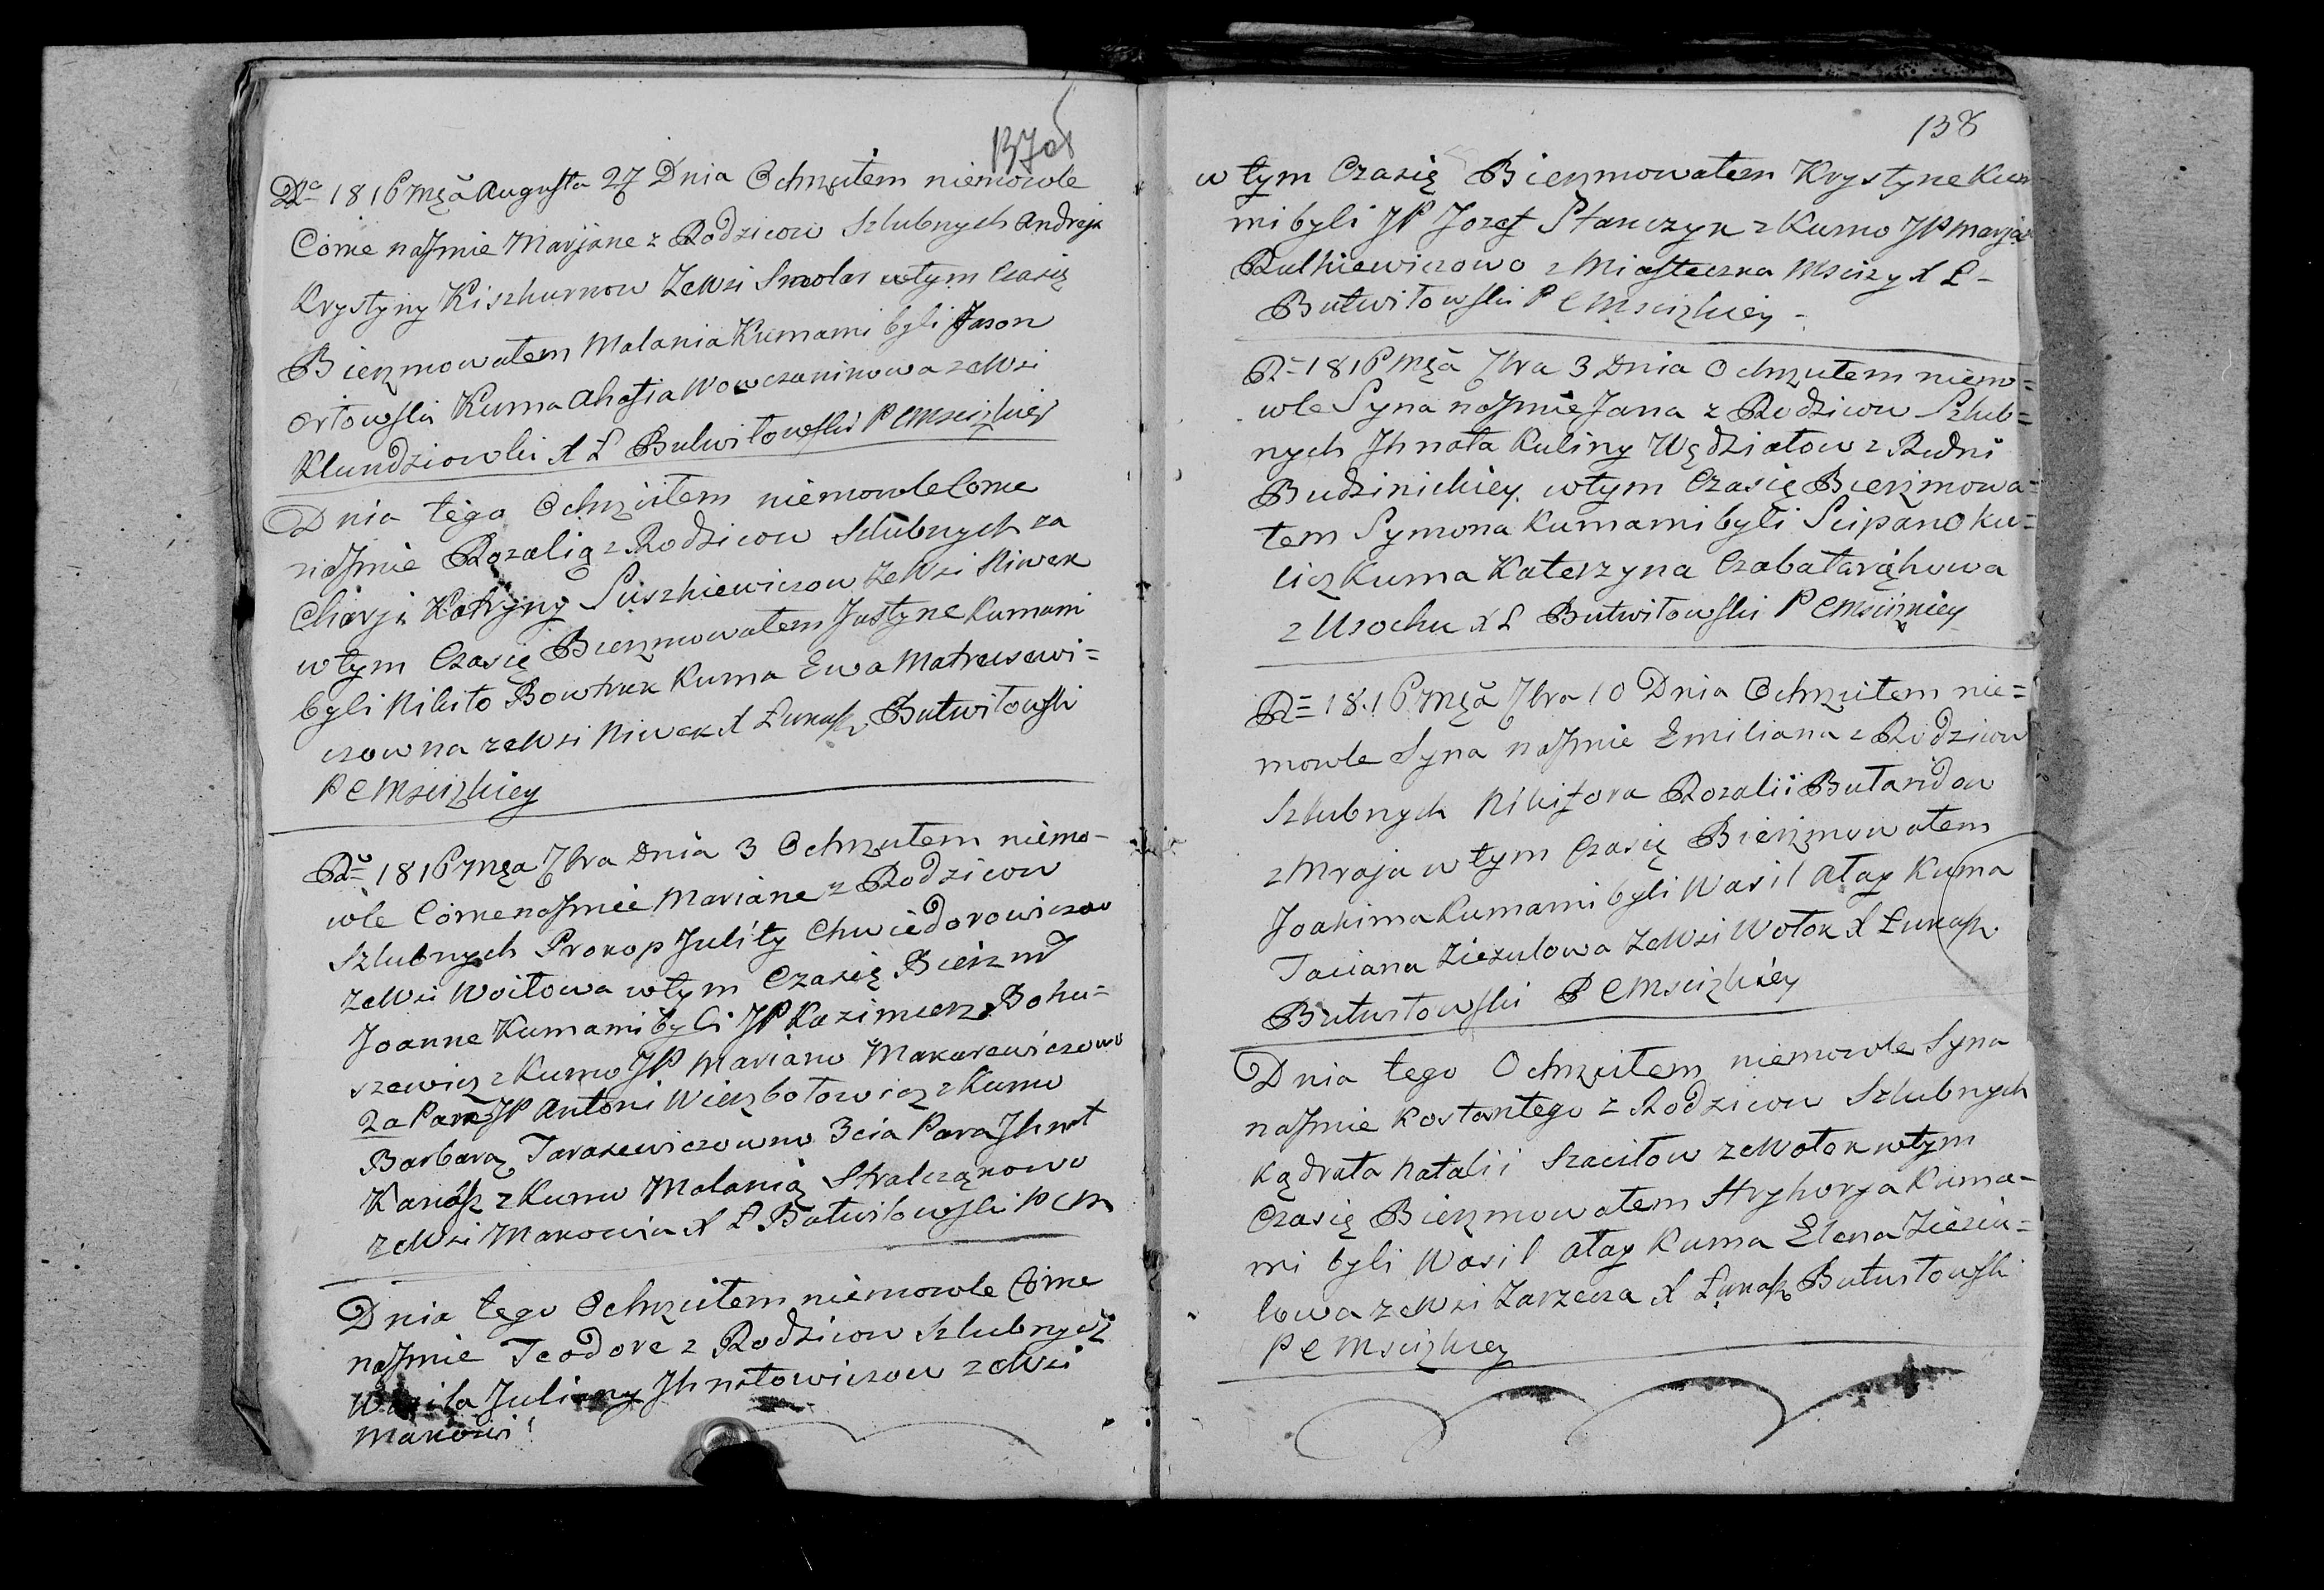 137 об
Rᵒ 1816 mcã Augusta 27 Dnia Ochrzcitem niemowle
Corke na Jmie Maryane z Rodzicow Szlubnych Andreja
Krystyny Kiszkurnow ze Wsi Smolar w tym Czasię
Bierzmowatem Malania Kumami byli Jason
Ortowski Kuma Ahafia Wowczaninowa ze Wsi
Klundziowki X Ł Butwitowski P C Msciżkiey
Dnia tego Ochrzcitem niemowle Corke
na Jmie Rozalią z Rodzicow Szlubnych Za
charji Katryny Suszkiewiczow ze Wsi Niwek
w tym Czasię Bierzmowatem Justyne Kumami
byli Nikito Bowtruk Kuma Ewa Matrusewi=
czowna ze Wsi Niwek X Łukasz Butwitowski
P C Msciżkiey
Rᵒ 1816 mca 7bra Dnia 3 Ochrzcitem niemo-
wle Corke na Jmie Mariane z Rodzicow
Szlubnych Prokop Julity Chwiedorowiczow
ze Wsi Woitowa w tym Czasię Bierzm
Joanne Kumami byli JP Kazimierz Bohu=
szewicz z Kumo JP Mariano Makarewiczowo
2a Para JP Antoni Wierzbotowicz z Kumo
Barbarą Tarasewiczowno 3cia Para Jhnat
Kanasz z Kumo Malanią Stralcząkowo
ze Wsi Makowia X Ł Butwitowski P C M
Dnia tego Ochrzcitem niemowle Corke
na Jmie Teodore z Rodzicow Szlubnych
Wasila Juliany Jhnatowiczow ze Wsi
Makowi
138
w tym Czasię Bierzmowatem Krystyne Kum
mi byli JP Jozef Stanczyk z Kumo JP Marja
Rutkiewiczowo z Miasteczka Msciży X Ł
Butwitowski P C Msciżkiey
Rᵒ 1816 mcã 7bra 3 Dnia Ochrzcitem niemo=
wle Syna na Jmie Jana z Rodzicow Szlub=
nych Jhnata Kuliny Wędziatow z Rudni
Budzinickiey w tym Czasię Bierzmowa=
tem Symona Kumami byli Scipan Oku=
licz Kuma Katerzyna Czabatarąkowa
z Usochu X Ł Butwitowski P C Msciżkiey
Rᵒ 1816 mcã 7bra 10 Dnia Ochrzcitem nie=
mowle Syna na Jmie Emiliana z Rodzicow
Szlubnych Nikifora Rozalii Butaridow
z Mraja w tym Czasię Bierzmowatem
Joakima Kumami byli Wasil Atay Kuma
Taciana Ziezulowa ze Wsi Wotok X Łukasz
Butwitowski P C Msciżkiey
Dnia tego Ochrzcitem niemowle Syna
na Jmie Kostantego z Rodzicow Szlubnych
Kądrata Natalii Szacitow ze Wotok w tym
Czasię Bierzmowatem Hryhorya Kuma-
mi byli Wasil Atay Kuma Elena Zieziu=
lowa ze Wsi Zarzecza X Łukasz Butwitowski
P C Msciżkiey